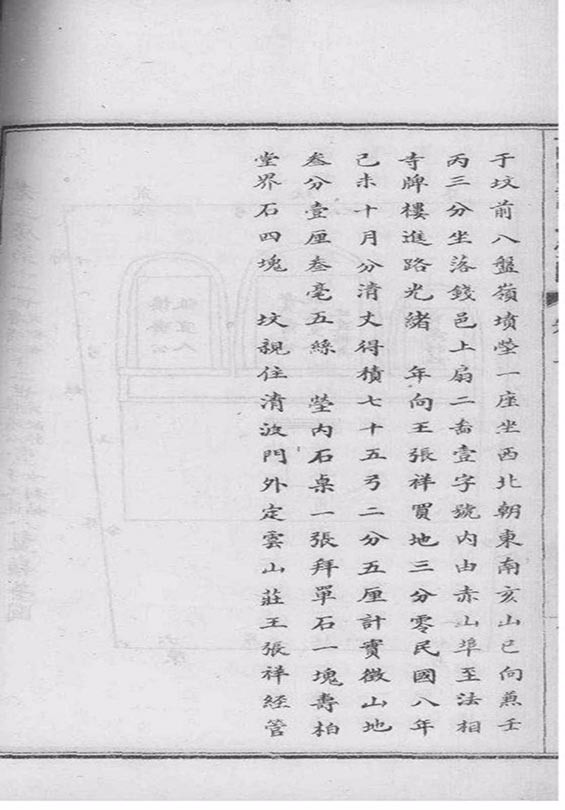 于坟前八盤嶺墳塋一座坐西北朝東南亥山巳向兼壬
丙三分坐落錢邑上扇二啚壹字號內由赤山埠至法相
寺牌樓進路光緒　年向王張祥買地三分零民國八年
己未十月分清丈得積七十五弓二分五厘計實徵山地
叁分壹厘叁毫五絲　塋內石桌一張拜單石一塊壽柏
堂界石四塊　坟親住清波門外定雲山莊王張祥經管